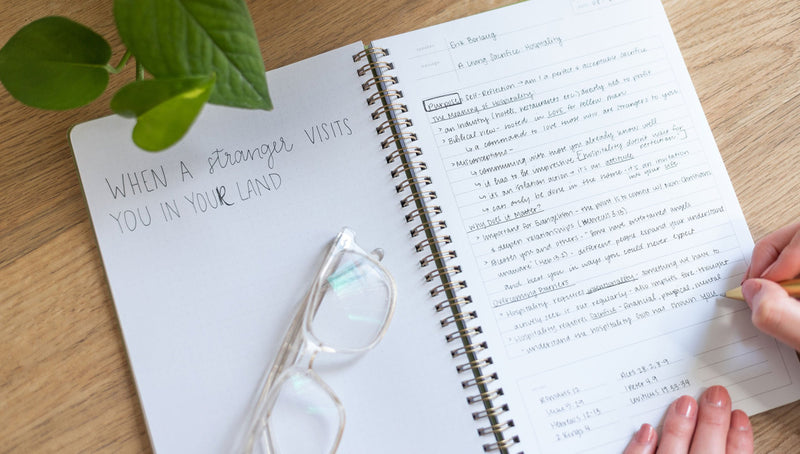 WHEN A stranger VISITS
YOU IN YOUR LAND
Erik Borlaug
A Living Sacrifice: Hospitality
Purpose: Self-Reflection → am I a perfect & acceptable sacrifice
The Meaning of Hospitality
an industry (hotels, restaurants etc.) directly tied to profit
Biblical view - rooted in LOVE for fellow man
↳ a command to love those who are strangers to you
Misconceptions -
↳ communing with those you already know well
↳ it has to be impressive [hospitality doesn't wait for perfection]
↳ it's an isolated action → it's an attitude
↳ can only be done in the home → it's an invitation into your life
Why Does it Matter?
Important for Evangelism - the point is to connect w/ Non-Christians
& deepen relationships (Hebrews 3:13)
Blesses you and others - "some have entertained angels
unaware" (Heb 13:2) - different people expand your understand
and bless you in ways you could never expect
Overcoming Barriers
Hospitality requires intentionality - something we have to
actively seek it out regularly - also implies fore thought
Hospitality requires sacrifice - financial, physical, mental
understand the hospitality God has shown you
Romans 12
Luke 5:29
Hebrews 12:13
2 Kings 4
Acts 28:2, 8-9
1 Peter 4:9
Leviticus 19:33-34